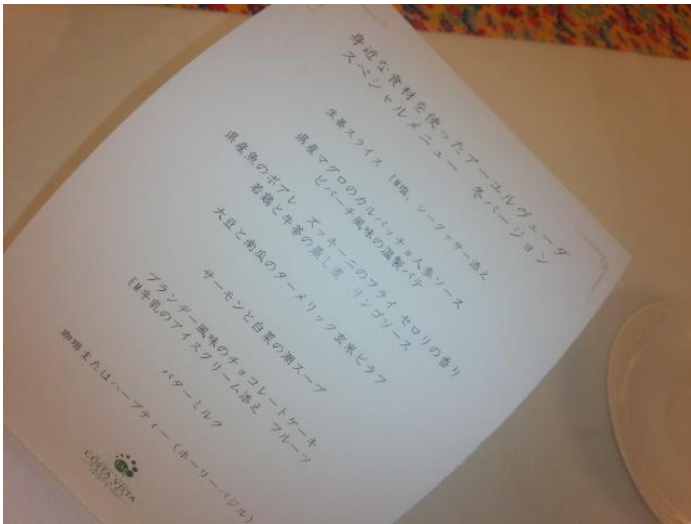 身近な食材を使ったアーユルヴェーダ
スペシャルメニュー 冬バージョン
生姜スライス EM塩、シークァサー添え
県産マグロのカルパッチョ人参ソース
ピパーチ風味の温製パテ
県産魚のポアレ ズッキーニのフライ セロリの香り
若鶏と牛蒡の蒸し煮 リンゴソース
大豆と南瓜のターメリック玄米ピラフ
サーモンと白菜の潮スープ
ブランデー風味のチョコレートケーキ
EM牛乳のアイスクリーム添え フルーツ
バターミルク
珈琲またはハーブティー (ホーリーバジル)
COSTA VISTA